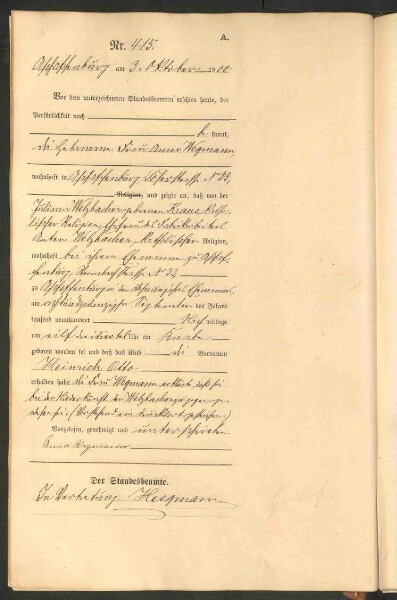 A.
Nr. 415.
Aschaffenburg am 3. Oktober 1900
Vor dem unterzeichneten Standesbeamten erschien heute, der
Persönlichkeit nach
be kannt,
die Hebamme Frau Anna Wegmann,
wohnhaft in Aschaffenburg N 23,
Religion, und zeigte an, daß von der
Juliana Welzbacher geborenen Kraus, katho-
lischer Religion, Ehefrau des Fabrikarbeiters
Anton Welzbacher, katholischer Religion,
wohnhaft bei ihrem Ehemanne zu Aschaf-
fenburg N 32
zu Aschaffenburg in der Wohnung ihres Ehemannes,
am achtundzwanzigsten September des Jahres
tausend neunhundert mittags
um elf Uhr ein Knabe
geboren worden sei und daß das Kind die Vornamen
Heinrich Otto
erhalten habe. Die Frau Wegmann erklärte, daß sie
bei der Niederkunft der Welzbacher zugegen ge-
wesen sei. (Vorstehend ein Druckwort gestrichen)
Vorgelesen, genehmigt und unterschrieben
Anna Wegmann
Der Standesbeamte.
In Vertretung